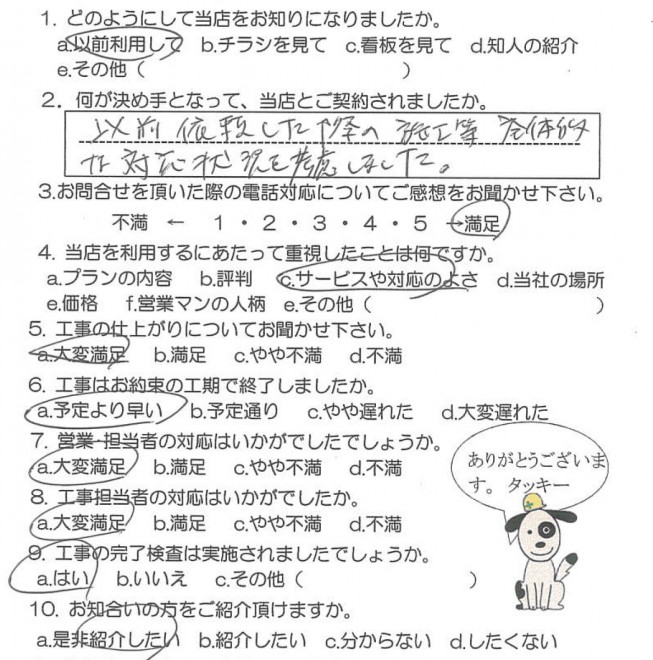 1. どのようにして当店をお知りになりましたか。
a.以前利用して b.チラシを見て c.看板を見て d.知人の紹介
e.その他（ ）
2. 何が決め手となって、当店とご契約されましたか。
以前依頼した際の施工等 全体的
な対応状況を考慮しました。
3.お問合せを頂いた際の電話対応についてご感想をお聞かせ下さい。
不満 ← 1・2・3・4・5 →満足
4. 当店を利用するにあたって重視したことは何ですか。
a.プランの内容 b.評判 c.サービスや対応のよさ d.当社の場所
e.価格 f.営業マンの人柄 e.その他（ ）
5. 工事の仕上がりについてお聞かせ下さい。
a.大変満足 b.満足 c.やや不満 d.不満
6. 工事はお約束の工期で終了しましたか。
a.予定より早い b.予定通り c.やや遅れた d.大変遅れた
7. 営業・担当者の対応はいかがでしたでしょうか。
a.大変満足 b.満足 c.やや不満 d.不満
ありがとうございま
す。 タッキー
8. 工事担当者の対応はいかがでしたか。
a.大変満足 b.満足 c.やや不満 d.不満
9. 工事の完了検査は実施されましたでしょうか。
a.はい b.いいえ c.その他（ ）
10. お知合いの方をご紹介頂けますか。
a.是非紹介したい b.紹介したい c.分からない d.したくない